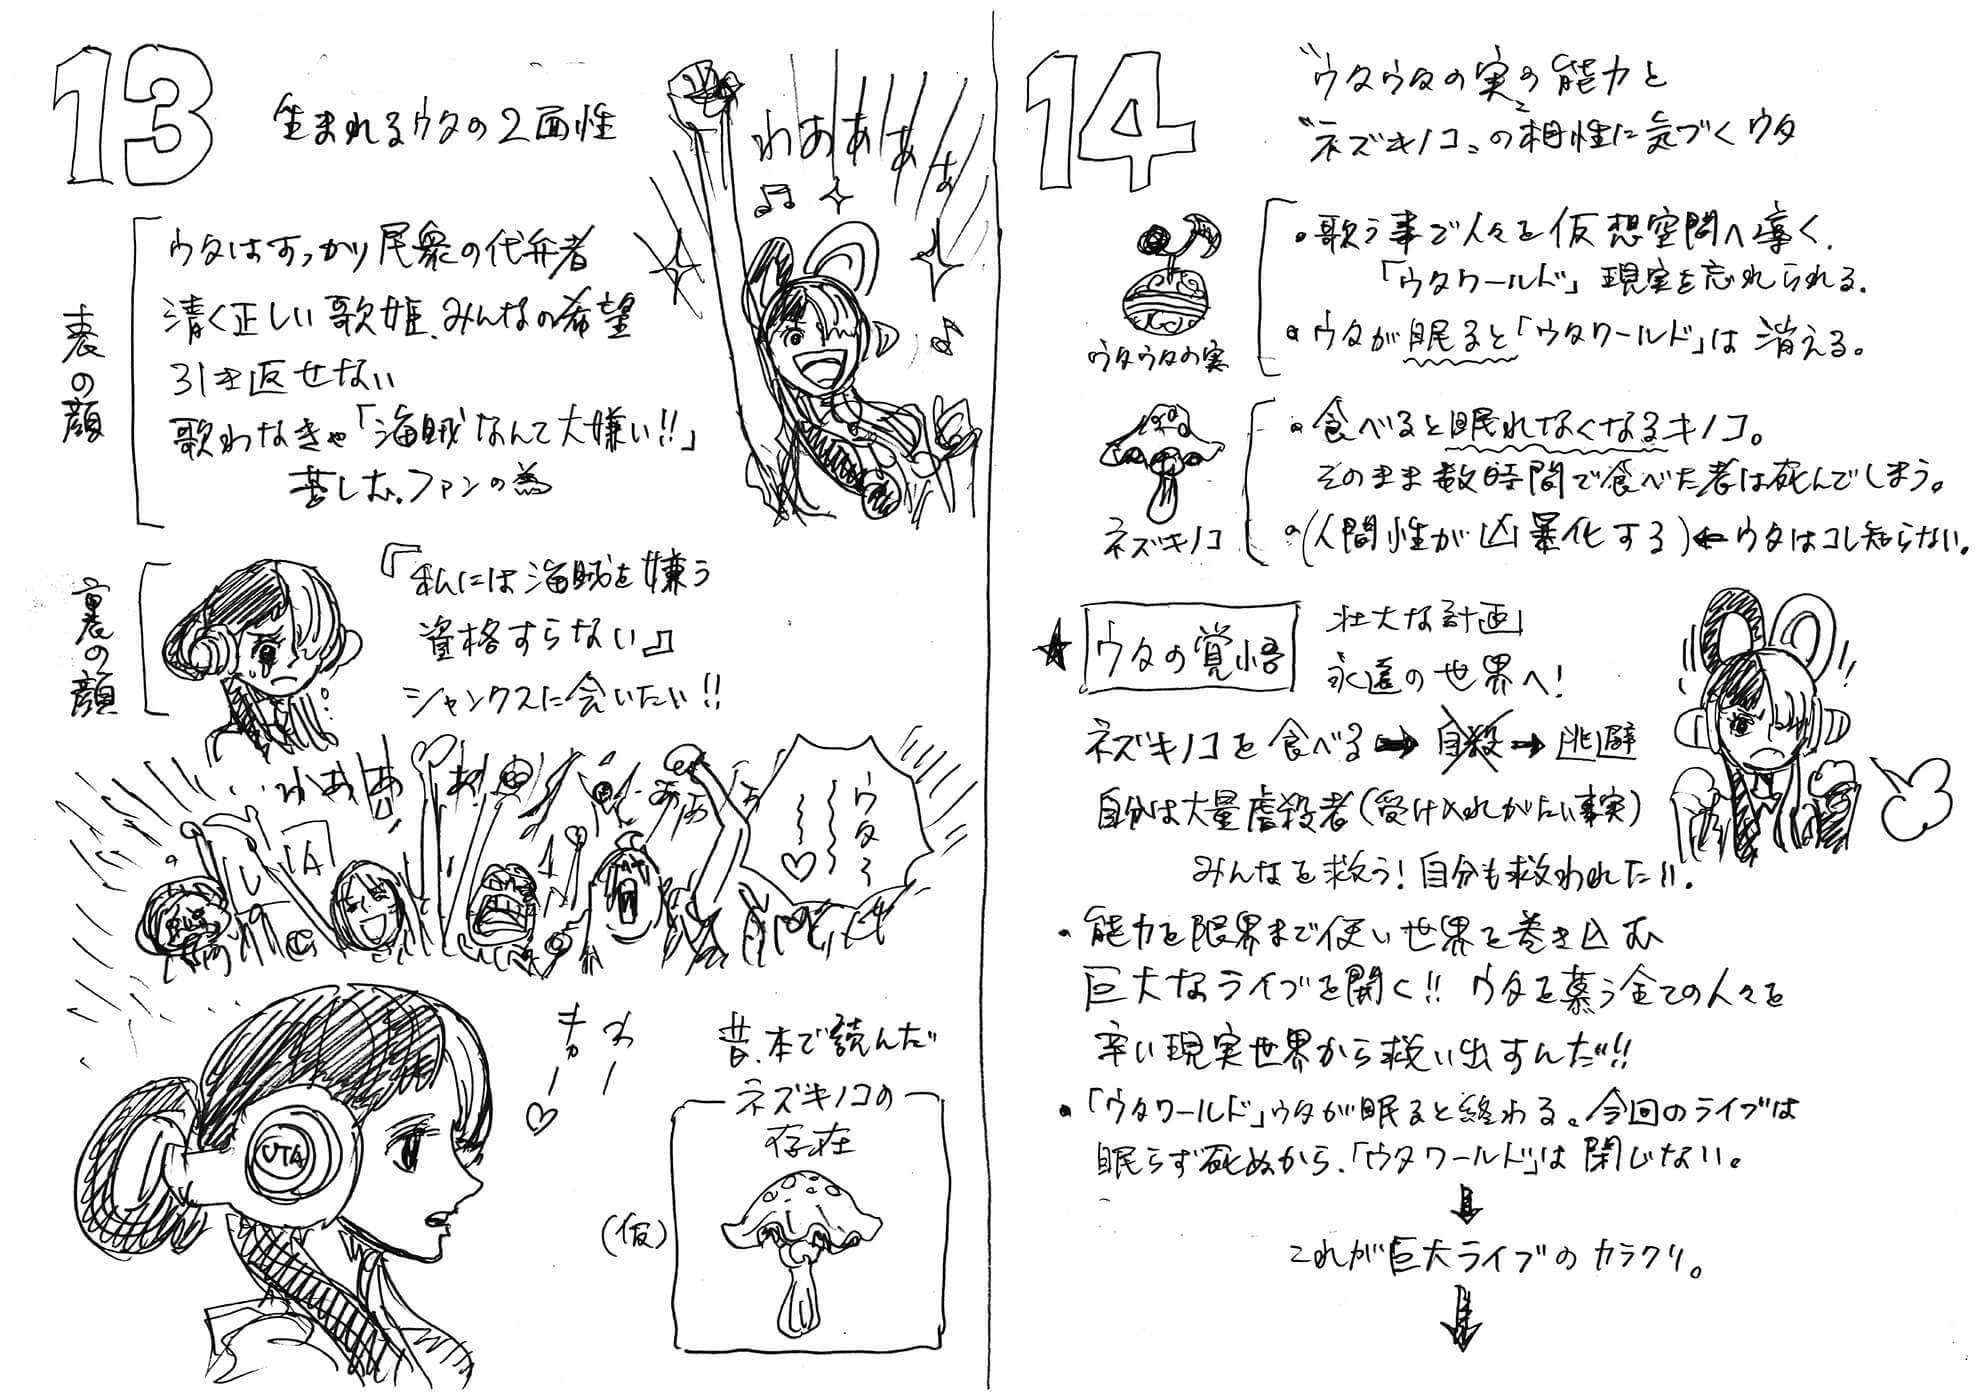 13
生まれるウタの2面性
わああああ
表の顔
ウタはすっかり民衆の代弁者
清く正しい歌姫、みんなの希望
引き返せない
歌わなきゃ「海賊なんて大嫌い!!」
苦しむ。ファンの為
裏の顔
『私には海賊を嫌う
資格すらない』
シャンクスに会いたい!!
わああああああ
ウタ〜
〜〜♡
UTA
キャー♡
わー
昔、本で読んだ
ネズキノコの
存在
(仮)
14
〝ウタウタの実〟の能力と
〝ネズキノコ〟の相性に気づくウタ
ウタウタの実
・歌う事で人々を仮想空間へ導く.
「ウタワールド」現実を忘れられる.
・ウタが眠ると「ウタワールド」は消える。
ネズキノコ
・食べると眠れなくなるキノコ。
そのまま数時間で食べた者は死んでしまう。
・(人間性が凶暴化する)←ウタはコレ知らない。
★ウタの覚悟
壮大な計画
永遠の世界へ!
ネズキノコを食べる➡自殺➡逃避
自分は大量虐殺者(受け入れがたい事実)
みんなを救う!自分も救われたい.
・能力を限界まで使い世界を巻き込む
巨大なライブを開く!!ウタを慕う全ての人々を
辛い現実世界から救い出すんだ!!
・「ウタワールド」ウタが眠ると終わる。今回のライブは
眠らず死ぬから、「ウタワールド」は閉じない。
⬇
これが巨大ライブのカラクリ。
⬇